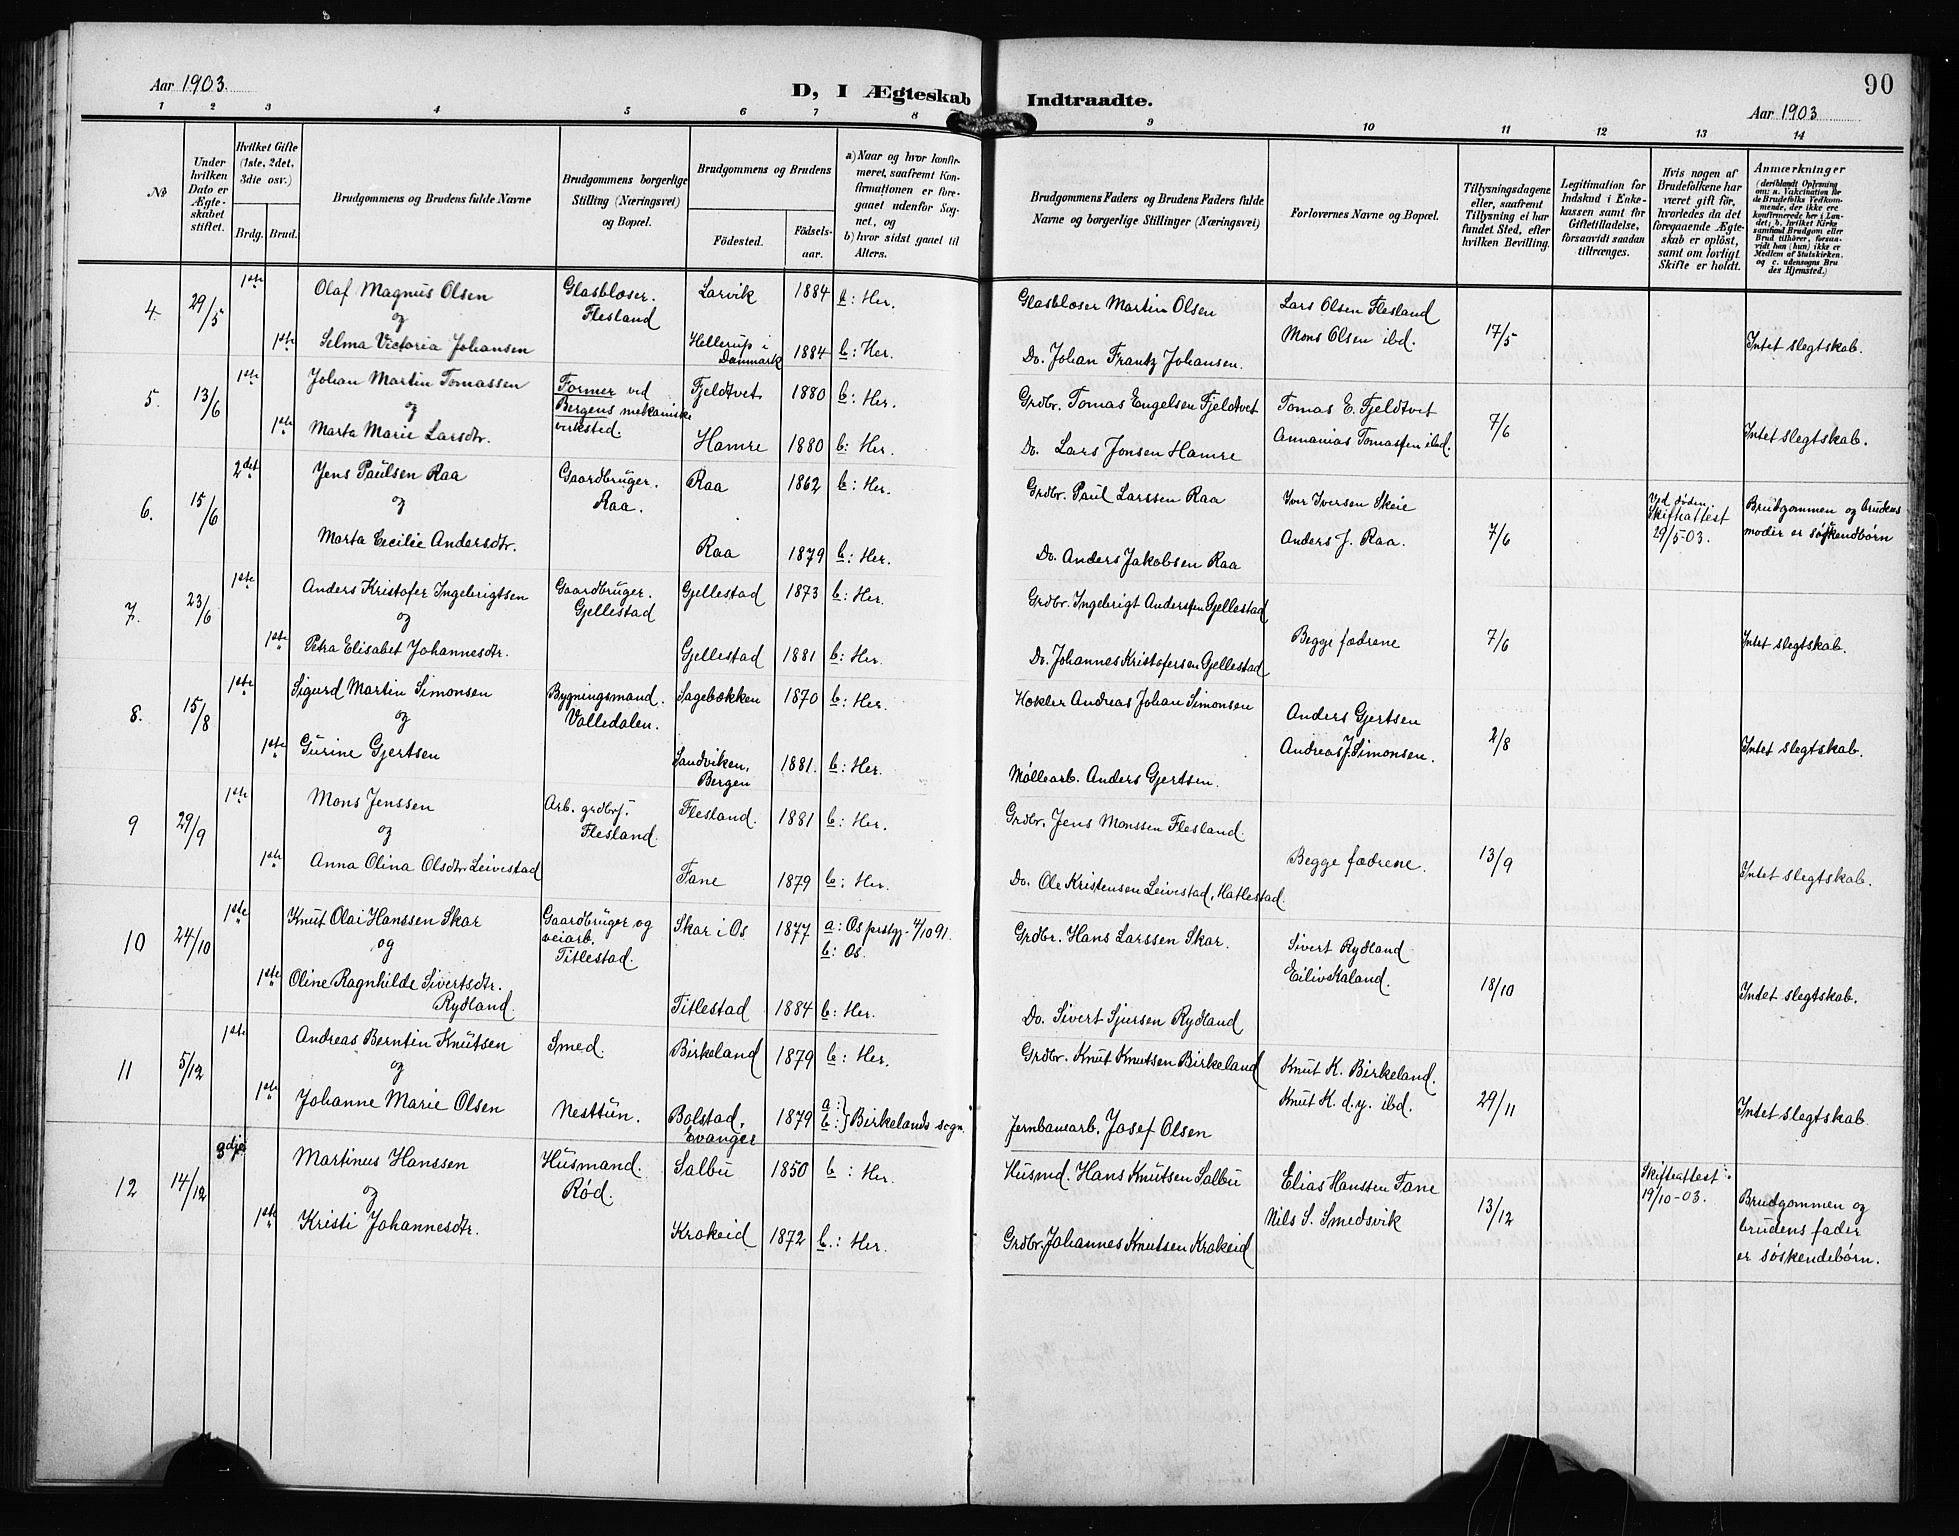 90
Aar 1903.
D, I Ægteskab Indtraadte.
Aar 1903
1 2 3 4 5 6 7 8 9 10 11 12 13 14
No
Under hvilken Dato er Ægteskabet stiftet.
Hvilket Gifte (1ste, 2det, 3die osv.)
Brdg. Brud.
Brudgommens og Brudens fulde Navne
Brudgommens borgerlige Stilling (Næringsvei) og Bopæl.
Brudgommens og Brudens
Födested. Födsels-aar.
a) Naar og hvor konfirmeret, saafremt Konfirmationen er foregaaet udenfor Sognet, og
b) hvor sidst gaaet til Alters.
Brudgommens Faders og Brudens Faders fulde Navne og borgerlige Stillinger (Næringsvei)
Forlovernes Navne og Bopæl.
Tillysningsdagene eller, saafremt Tillysning ei har fundet Sted, efter hvilken Bevilling.
Legitimation for Indskud i Enkekassen samt for Giftetilladelse, forsaavidt saadan tiltrænges.
Hvis nogen af Brudefolkene har været gift för, hvorledes da det foregaaende Ægteskab er oplöst, samt om lovligt Skifte er holdt.
Anmærkninger
(deriblandt Oplysning om: a. Vakcination for de Brudefolks Vedkommende, der ikke ere konfirmerede her i Landet; b. hvilket Kirkesamfund Brudgom eller Brud tilhörer, forsaavidt han (hun) ikke er Medlem af Statskirken. og c. udensogns Brudes Hjemsted.)
4. 29/5 1ste Olaf Magnus Olsen Glasblæser. Flesland Larvik 1884 b: Her. Glasblæser Martin Olsen Lars Olsen Flesland
og Mons Olsen ibd. 17/5
1ste Selma Victoria Johansen Hellerup i Danmark 1884 b: Her. Do. Johan Frantz Johansen. Intet slegtskab.
5. 13/6 1ste Johan Martin Tomassen Former ved Bergens mekaniske virksted. Fjeldtvet 1880 b: Her. Grdbr. Tomas Engelsen Fjeldtvet Tomas E. Fjeldtvet
og Annanias Tomassen ibd. 7/6
1ste Marta Marie Larsdtr. Hamre 1880 b: Her. Do. Lars Jonsen Hamre Intet slegtskab.
6. 15/6 2det Jens Paulsen Raa Gaardbruger. Raa. Raa 1862 b: Her. Grdbr. Paul Larssen Raa Iver Iversen Skeie Ved døden Skifteattest 29/5-03. Brudgommen og brudens moder er søskendbørn
og
Marta Cecilie Andersdtr. Raa 1879 b: Her. Do. Anders Jakobsen Raa Anders J. Raa. 7/6
7. 23/6 1ste Anders Kristofer Ingebrigtsen Gaardbruger. Gjellestad Gjellestad 1873 b: Her. Grdbr. Ingebrigt Anderssen Gjellestad
og Begge fædrene 7/6
1ste Petra Elisabet Johannesdtr. Gjellestad 1881 b: Her. Do. Johannes Kristofersen Gjellestad Intet slegtskab.
8. 15/8 1ste Sigurd Martin Simonsen Bygningsmand. Valledalen. Sagebækken 1870 b: Her. Høkler Andreas Johan Simonsen Anders Gjertsen
og Andreas J. Simonsen. 2/8
1ste Gurine Gjertsen Sandviken, Bergen 1881. b: Her. Møllearb. Anders Gjertsen. Intet slegtskab.
9 29/9 1ste Mons Jenssen Arb. grdbrs. Flesland. Flesland. 1881 b: Her. Grdbr. Jens Monssen Flesland.
og Begge fædrene. 13/9
1ste Anna Olina Olsdtr. Leivestad Fane 1879 b: Her. Do. Ole Kristensen Leivestad, Hatlestad Intet slegtskab.
10 24/10 1ste Knut Olai Hanssen Skar Gaardbruger og veiarb. Titlestad. Skar i Os 1877 a: Os prstgj. 4/10 91. b: Os. Grdbr. Hans Larssen Skar. Sivert Rydland
og Eiliv Skaland. 18/10
1ste Oline Ragnhilde Sivertsdtr. Rydland. Titlestad 1884 b: Her. Do. Sivert Sjursen Rydland Intet slegtskab.
11 5/12 1ste Andreas Berntin Knutsen Smed. Birkeland 1879 b: Her. Grdbr. Knut Knutsen Birkeland Knut K. Birkeland.
og Knut K. d.y. ibd. 29/11
1ste Johanne Marie Olsen Nesttun. Bolstad, Evanger 1879 a: b: } Birkelands sogn. Jernbanearb. Josef Olsen Intet slegtskab
12 14/12 3dje Martinus Hanssen Husmand. Rød. Salbu 1850 b: Her. Husmd. Hans Knutsen Salbu Elias Hanssen Fane Skifteattest: 19/10-03.
og Nils S. Smedsvik 13/12 Brudgommen og brudens fader er søskendebørn.
1ste Kristi Johannesdtr. Krokeid 1872 b.: Her. Grdbr. Johannes Knutsen Krokeid